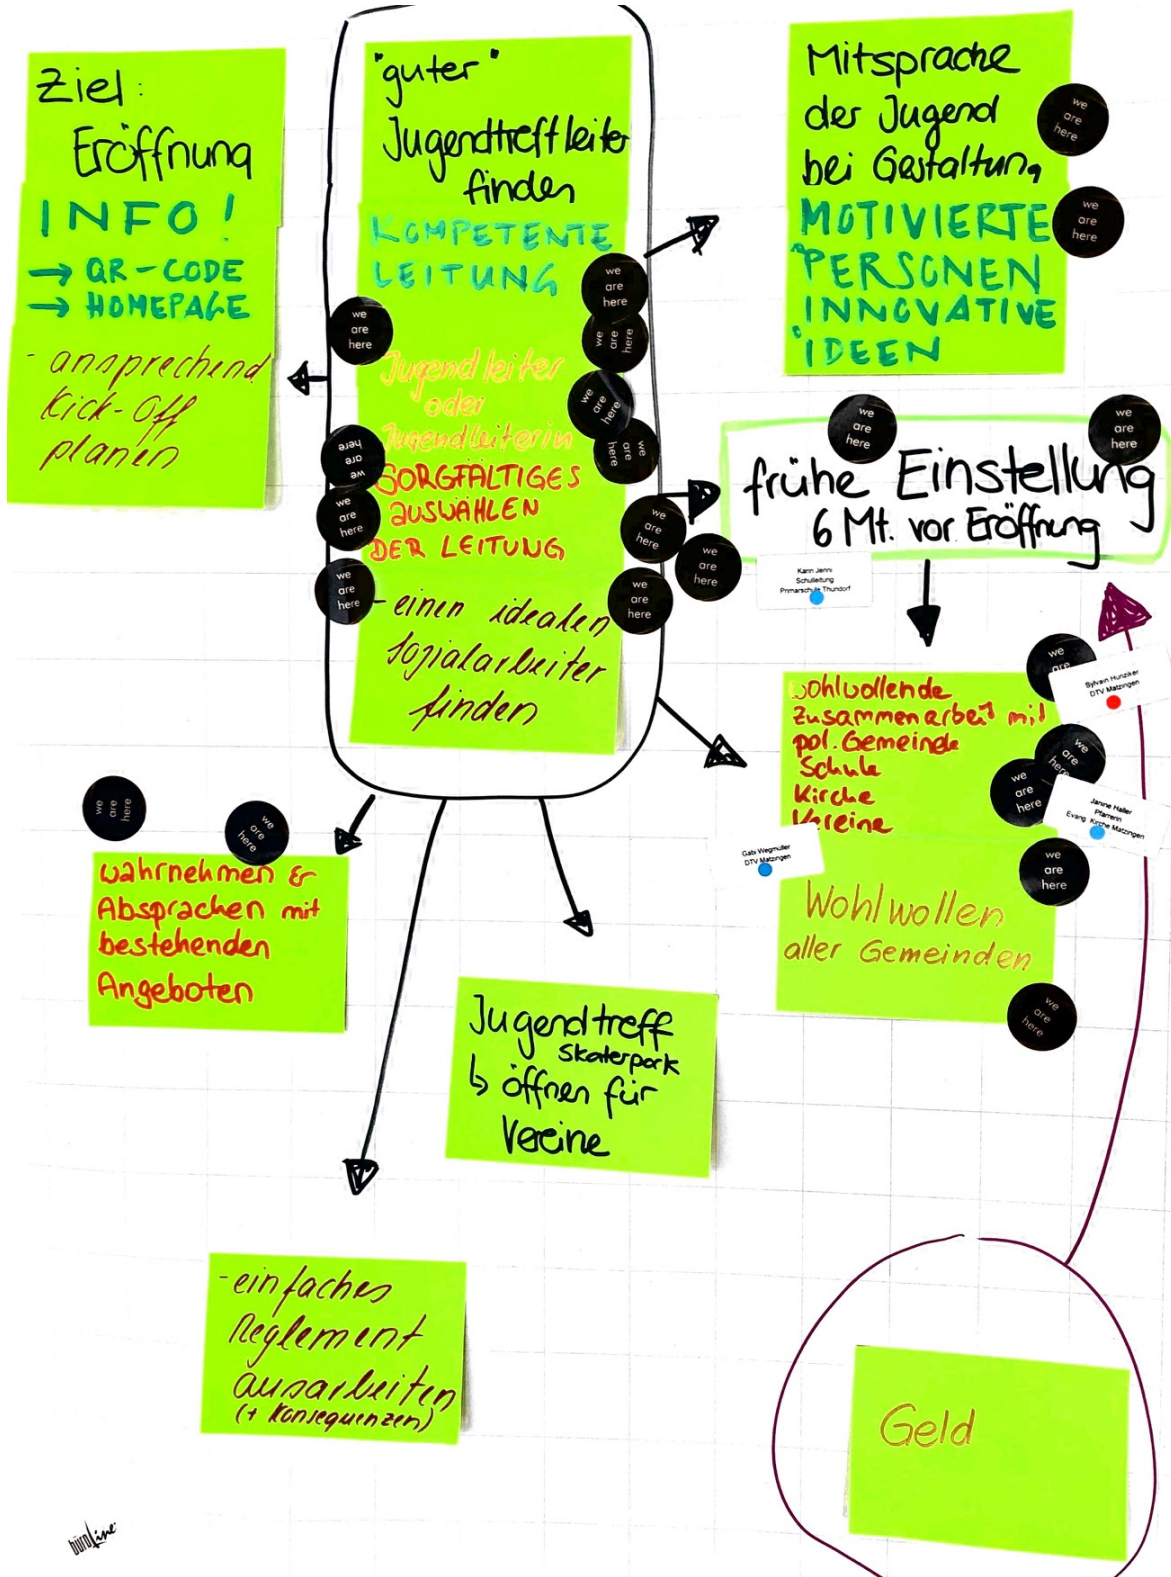 Ziel:
Eröffnung
INFO!
→ QR-CODE
→ HOMEPAGE
- ansprechend
Kick-Off
planen
"guter"
Jugendtreffleiter
finden
KOMPETENTE
LEITUNG
Jugendleiter
oder
Jugendleiterin
SORGFÄLTIGES
AUSWÄHLEN
DER LEITUNG
- einen idealen
Sozialarbeiter
finden
we
are
here
we
are
here
we
are
here
we
are
here
we
are
here
we
are
here
we
are
here
we
are
here
we
are
here
we
are
here
we
are
here
Mitsprache
der Jugend
bei Gestaltung
MOTIVIERTE
PERSONEN
INNOVATIVE
IDEEN
we
are
here
we
are
here
we
are
here
we
are
here
frühe Einstellung
6 Mt. vor Eröffnung
Karin Jenni
Schulleitung
Primarschule Thundorf
wohlwollende
Zusammenarbeit mit
pol. Gemeinde
Schule
Kirche
Vereine
we
are
Sylvain Hunziker
DTV Matzingen
we
are
here
we
are
here
Janine Haller
Pfarrerin
Evang. Kirche Matzingen
Gabi Wegmüller
DTV Matzingen
we
are
here
Wohlwollen
aller Gemeinden
we
are
here
we
are
here
we
are
here
wahrnehmen &
Absprachen mit
bestehenden
Angeboten
Jugendtreff
Skaterpark
↳ öffnen für
Vereine
- einfaches
Reglement
ausarbeiten
(+ Konsequenzen)
Geld
büroline